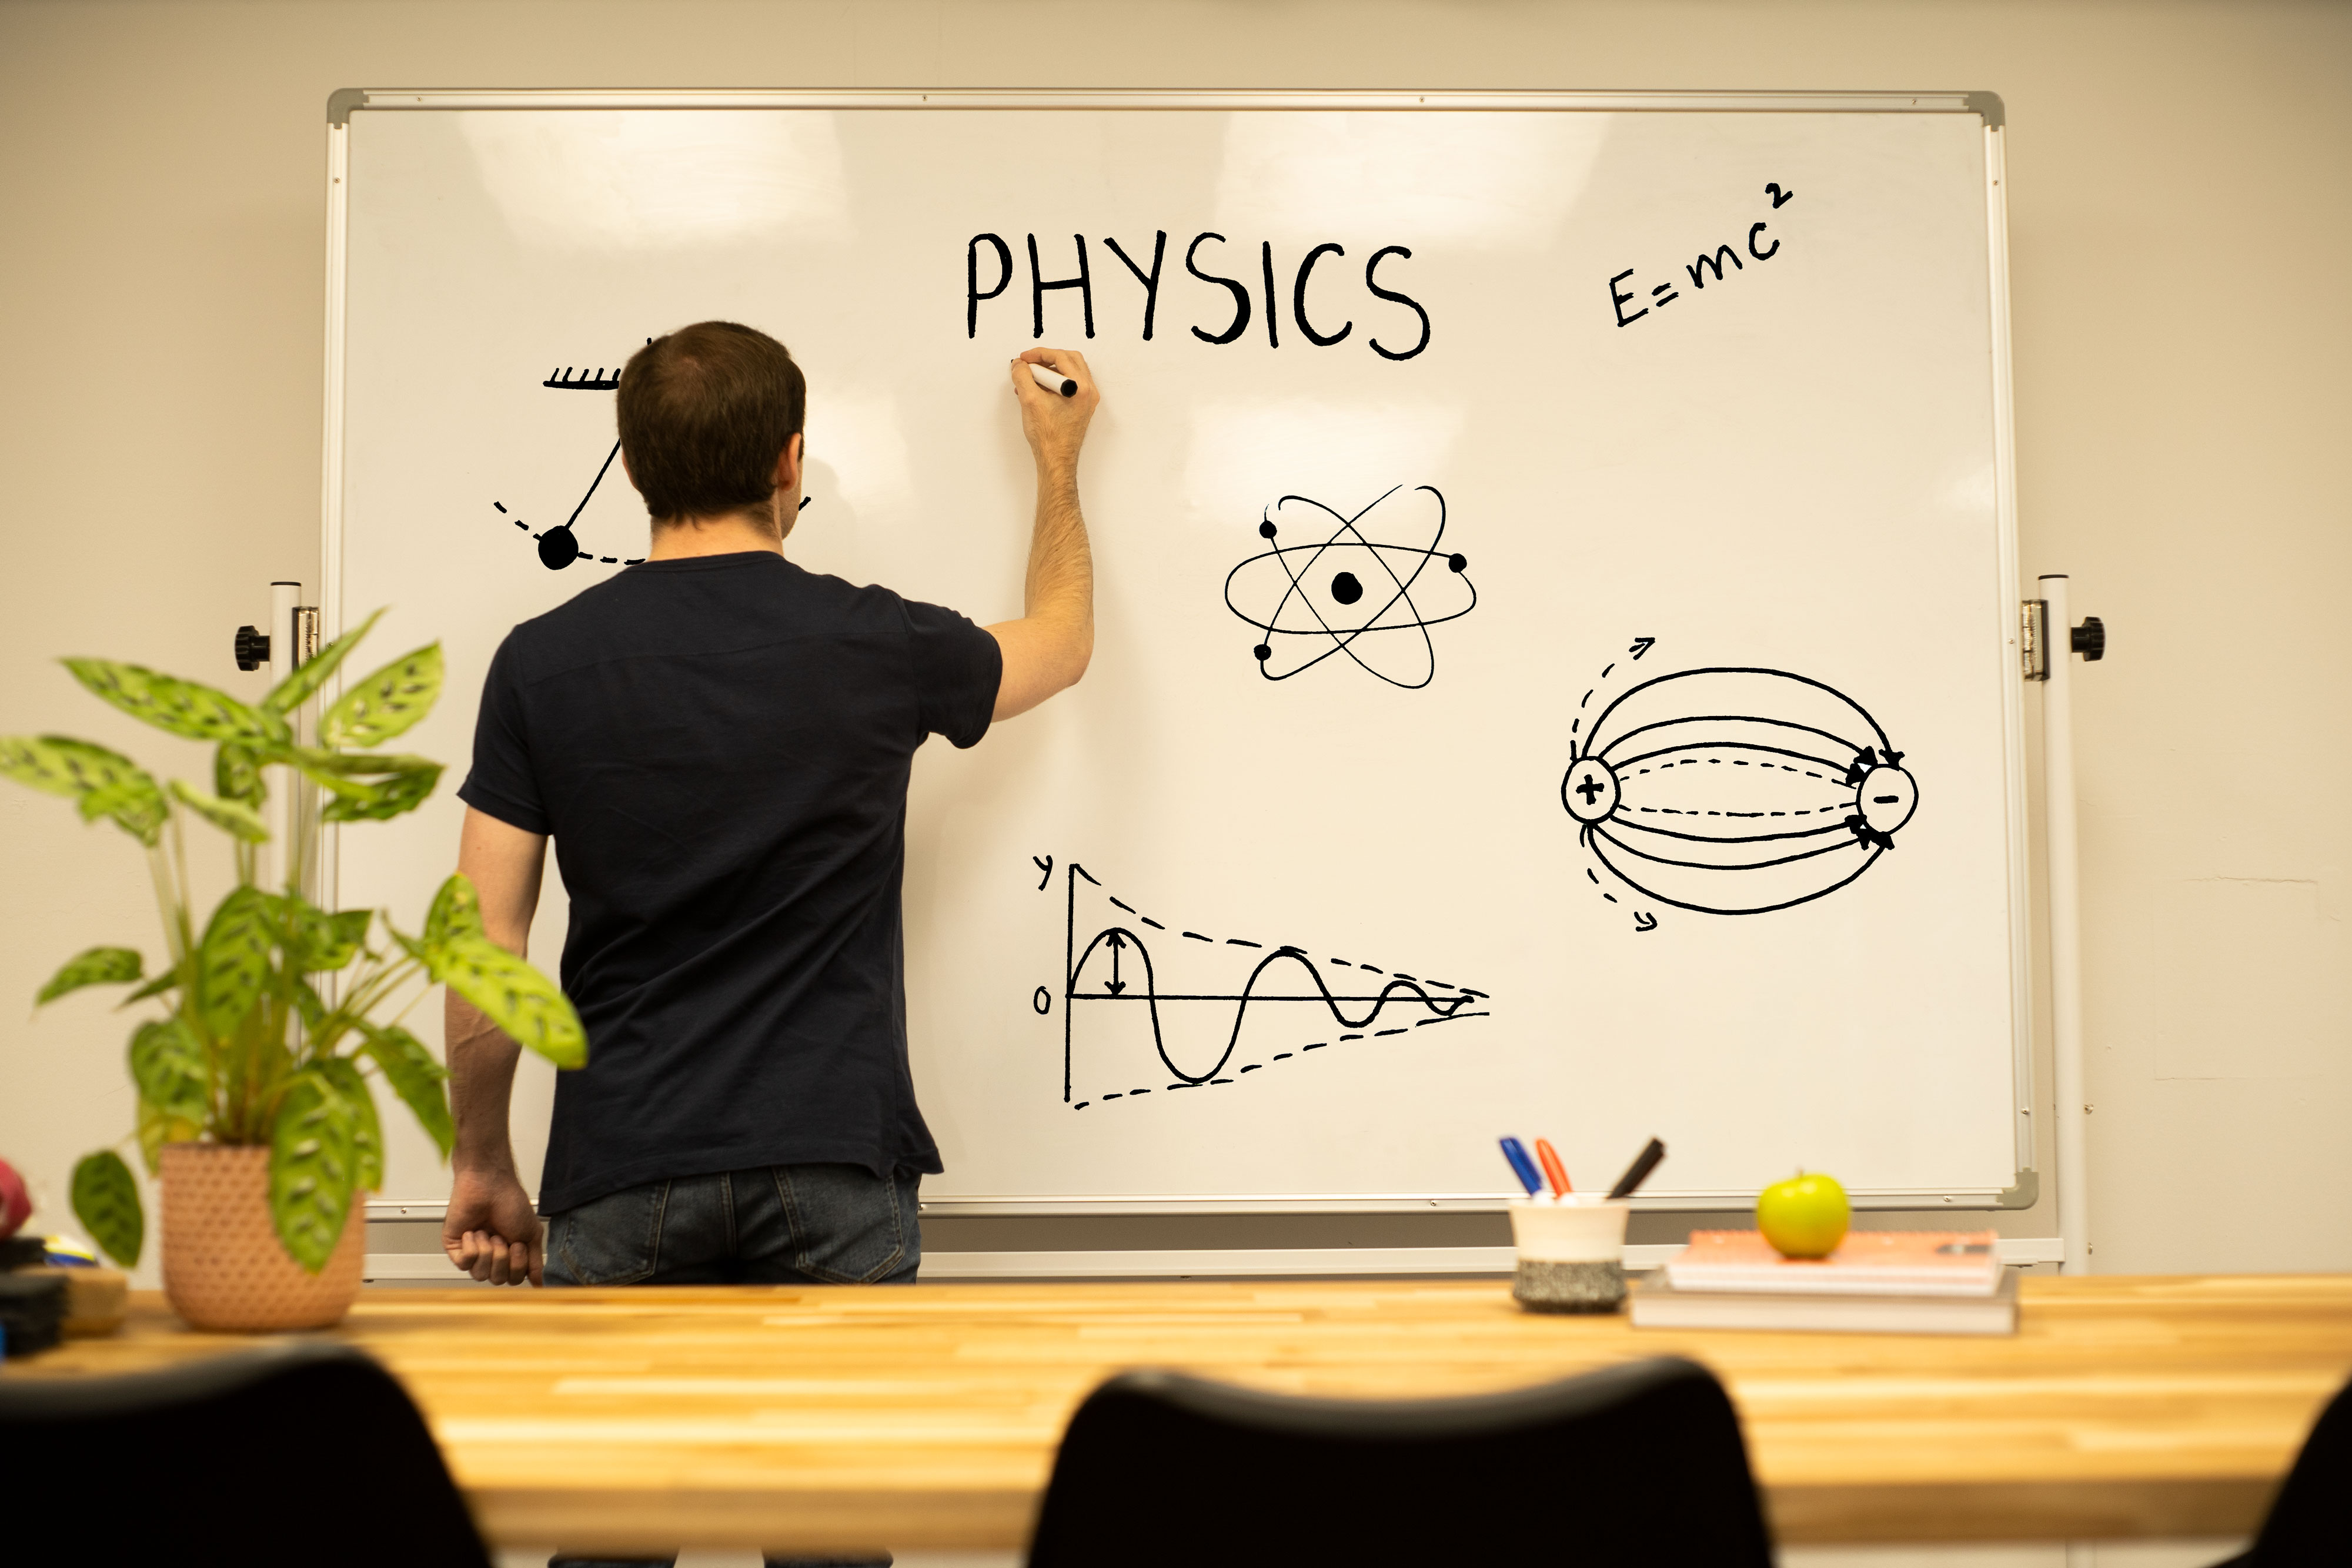 PHYSICS
E=mc²
+
-
y
0